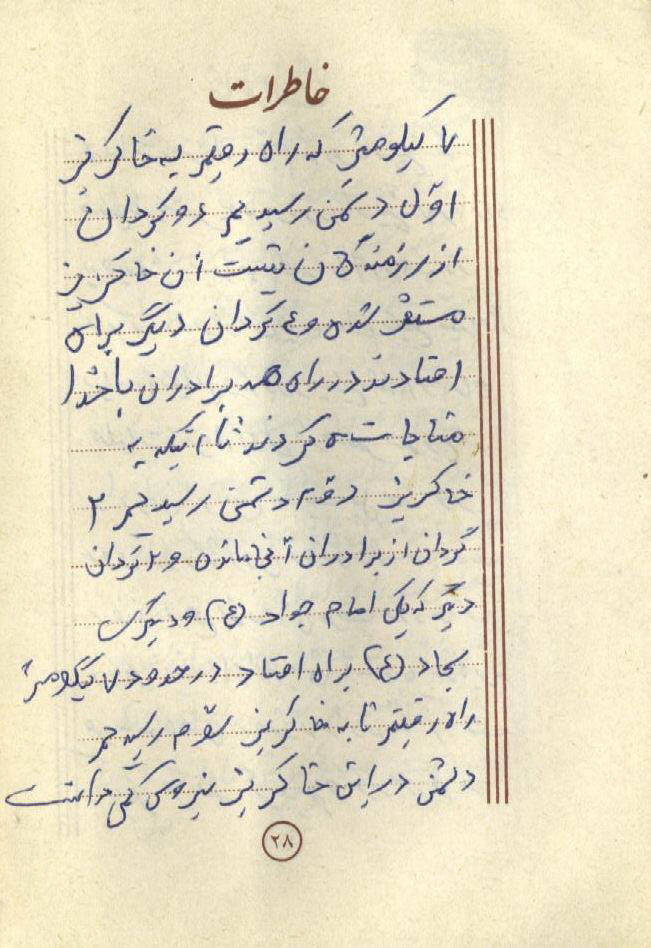 خاطرات
۷ کیلومتر که راه رفتیم به خاکریز
اول دشمن رسیدیم دو گردان
از رزمندگان پشت آن خاکریز
مستقر شده و ٤ گردان دیگر براه
افتادند در راه همه برادران با خدا
مناجات می کردند تا اینکه به
خاکریز دوم دشمن رسیدیم ۲
گردان از برادران آنجا مانده و ۲ گردان
دیگر که یکی امام جواد (ع) و دیگری
سجاد (ع) براه افتاد در حدود ۷ کیلومتر
راه رفتیم تا به خاکریز سوم رسیدیم
دشمن در این خاکریز نیروی کمی داشت
۲۸